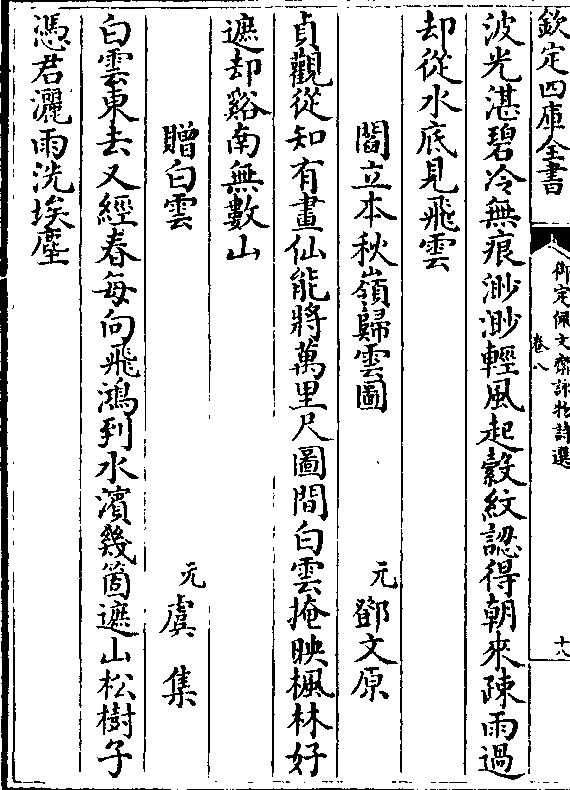 欽定四庫全書
御定佩文齋詠物詩選
卷八
十八
波光湛碧冷無痕渺渺輕風起縠紋認得朝來踈雨過
却從水底見飛雲
閻立本秋嶺歸雲圖 元 鄧文原
貞觀從知有畫仙能將萬里尺圖間白雲掩映楓林好
遮却谿南無數山
贈白雲 元 虞集
白雲東去又經春每向飛鴻到水濱幾箇遮山松樹子
憑君灑雨洗埃塵